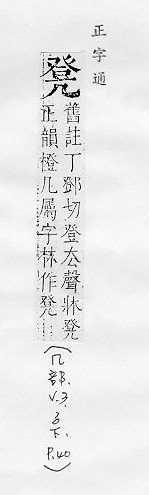 正字通
凳
舊註丁鄧切登去聲牀凳
正韻橙几屬字林作凳
(几部. V.3. 子下. P.40)